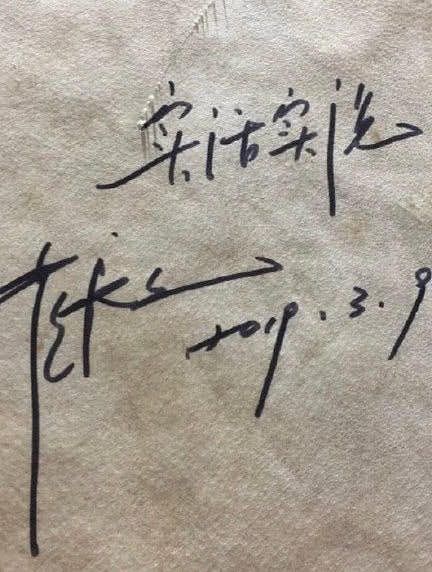 实话实说
2019.3.9